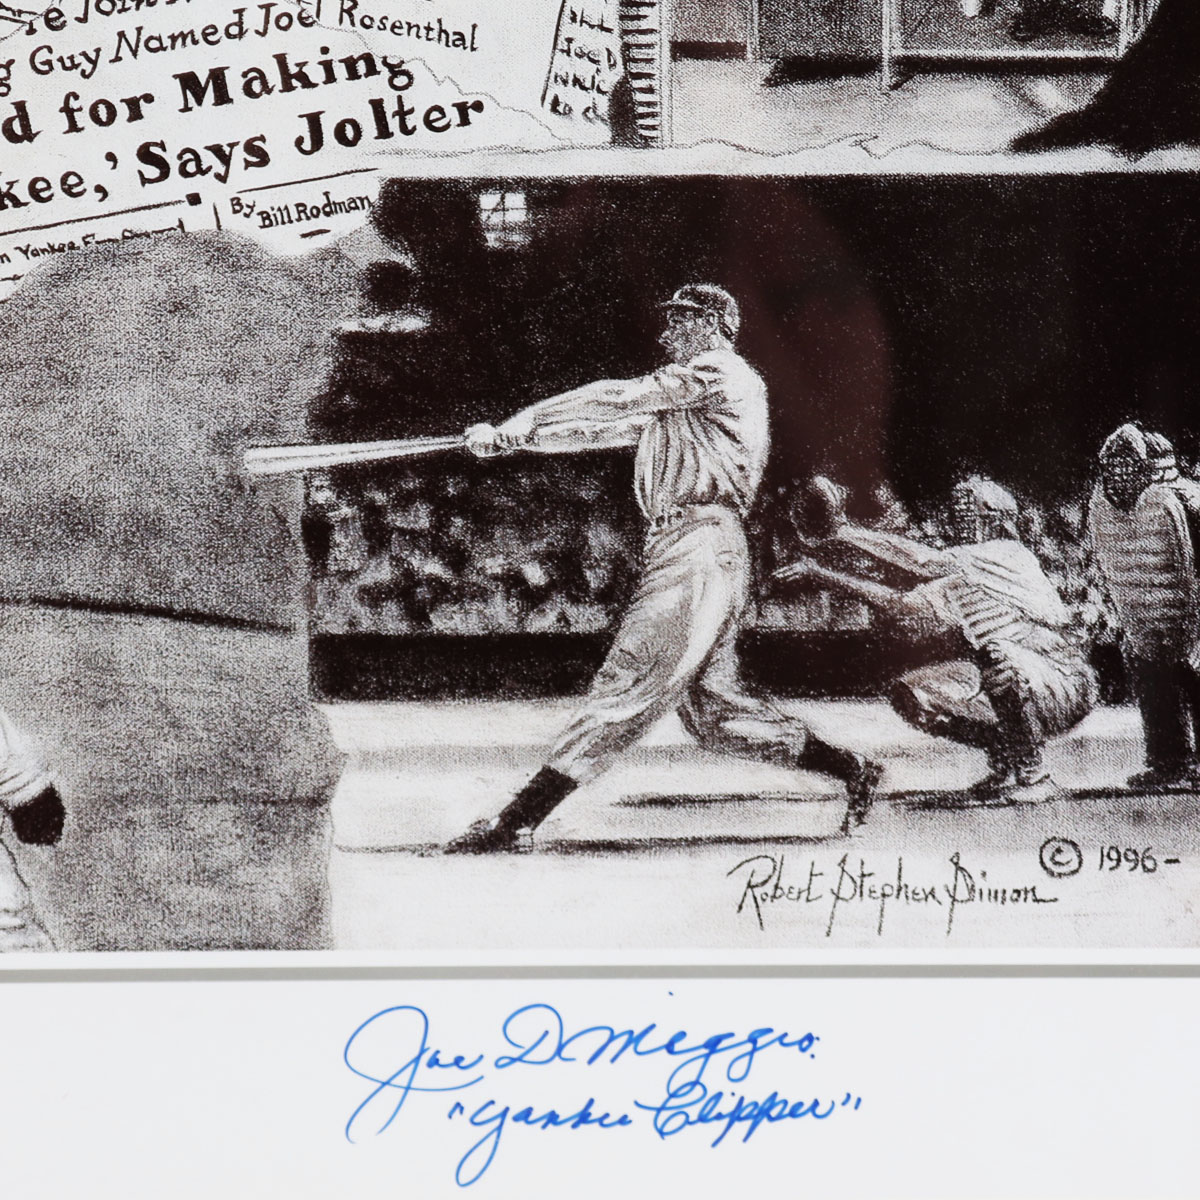 Guy Named Joe Rosenthal
d for Making
kee,' Says Jolter
By
Bill Rodman
n Yankee
Joe D
Robert Stephen Simon © 1996-
Joe DiMaggio
"Yankee Clipper"